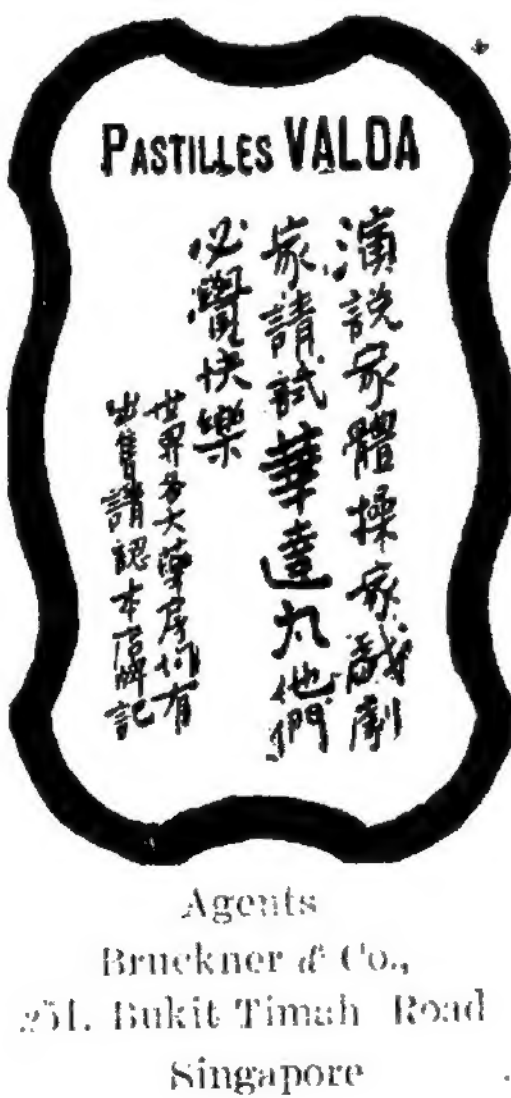 PASTILLES VALDA
演説家體操家戲劇
家請試華達丸他們
必覺快樂
世界各大藥房均有
出售請認本店牌記
Agents
Bruckner & Co.,
251. Bukit Timah Road
Singapore